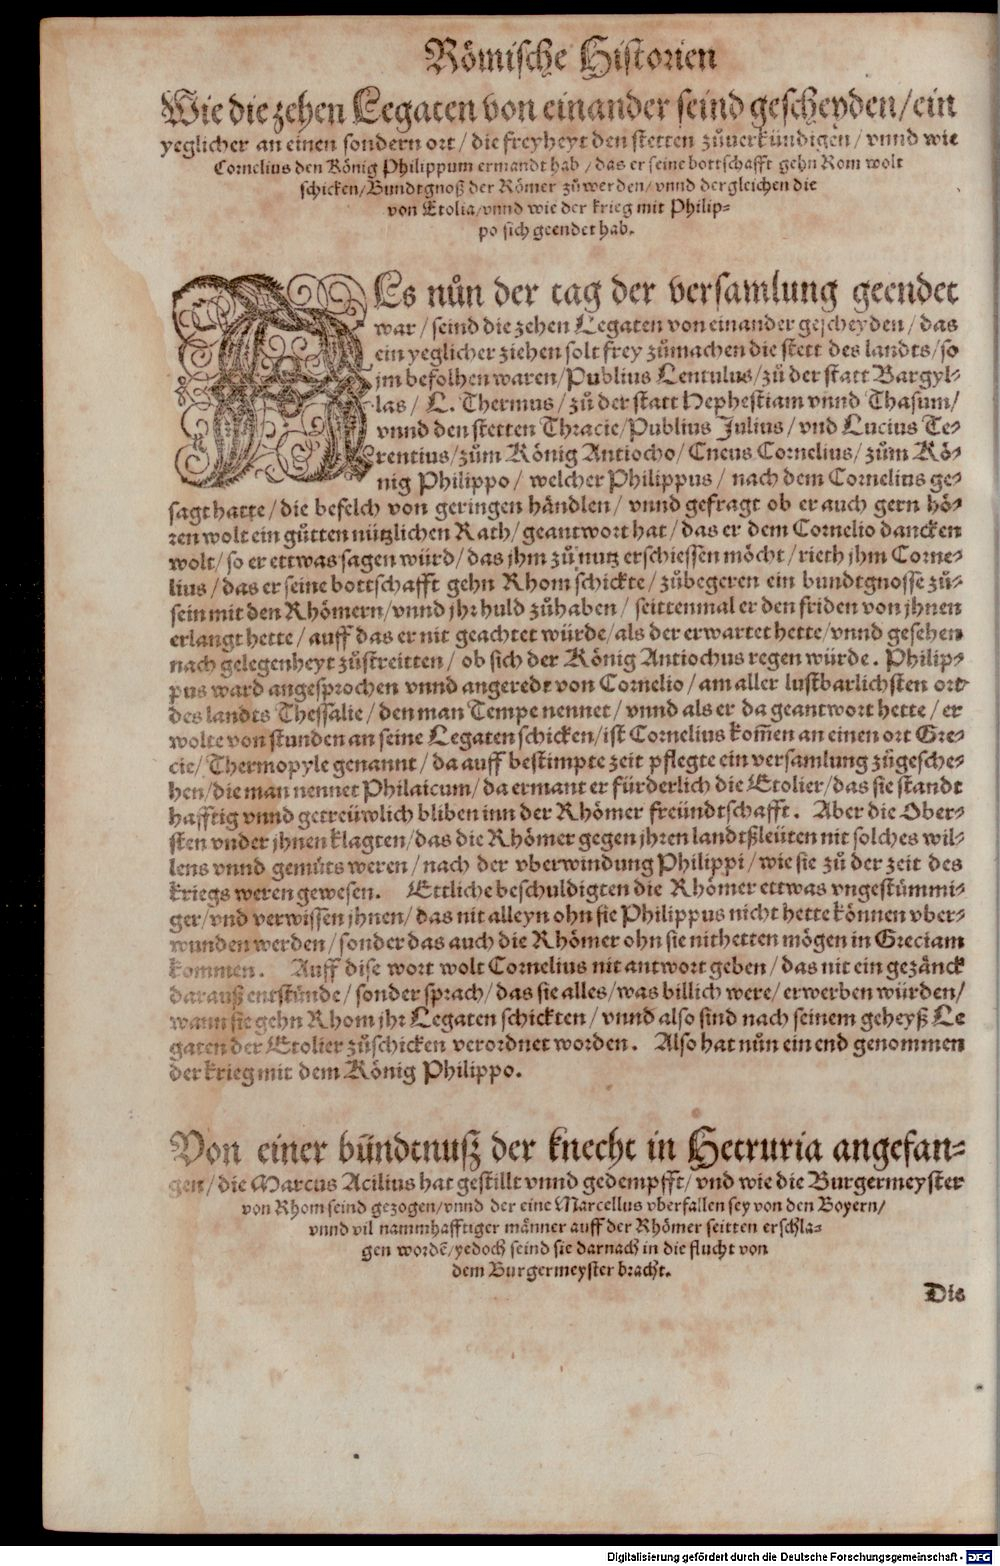 Römische Historien
Wie die zehen Legaten von einander seind gescheyden/ein
yeglicher an einen sondern ort/die freyheyt den stetten zůuerkündigen/vnnd wie
Cornelius den König Philippum ermandt hab/das er seine bottschafft gehn Rom wolt
schicken/Bundtgnoß der Römer zůwerden/vnnd dergleichen die
von Etolia/vnnd wie der krieg mit Philip⸗
po sich geendet hab.
ALs nůn der tag der versamlung geendet
war/seind die zehen Legaten von einander gescheyden/das
ein yeglicher ziehen solt frey zůmachen die stett des landts/so
jm befolhen waren/Publius Lentulus/zů der statt Bargyl⸗
las/L. Thermus/zů der statt Hephestiam vnnd Thasum/
vnnd den stetten Thracie/Publius Julius/vnd Lucius Te⸗
rentius/zům König Antiocho/Cneus Cornelius/zům Kö⸗
nig Philippo/welcher Philippus/nach dem Cornelius ge⸗
sagt hatte/die befelch von geringen händlen/vnnd gefragt ob er auch gern hö⸗
ren wolt ein gůtten nützlichen Rath/geantwort hat/das er dem Cornelio dancken
wolt/so er ettwas sagen würd/das jhm zů nutz erschiessen möcht/rieth jhm Corne⸗
lius/das er seine bottschafft gehn Rhom schickte/zůbegeren ein bundtgnosse zů⸗
sein mit den Rhömern/vnnd jhr huld zůhaben/seittenmal er den friden von jhnen
erlangt hette/auff das er nit geachtet würde/als der erwartet hette/vnnd gesehen
nach gelegenheyt zůstreitten/ob sich der König Antiochus regen würde. Philip⸗
pus ward angesprochen vnnd angeredt von Cornelio/am aller lustbarlichsten ort
des landts Thessalie/den man Tempe nennet/vnnd als er da geantwort hette/er
wolte von stunden an seine Legaten schicken/ist Cornelius kom̃en an einen ort Gre⸗
cie/Thermopyle genannt/da auff bestimpte zeit pflegte ein versamlung zůgesche⸗
hen/die man nennet Philaicum/da ermant er fürderlich die Etolier/das sie standt
hafftig vnnd getreüwlich bliben inn der Rhömer freündtschafft. Aber die Ober⸗
sten vnder jhnen klagten/das die Rhömer gegen jhren landtßleüten nit solches wil⸗
lens vnnd gemüts weren/nach der vberwindung Philippi/wie sie zů der zeit des
kriegs weren gewesen. Ettliche beschuldigten die Rhömer ettwas vngestümmi⸗
ger/vnd verwissen jhnen/das nit alleyn ohn sie Philippus nicht hette können vber⸗
wunden werden/sonder das auch die Rhömer ohn sie nit hetten mögen in Greciam
kommen. Auff dise wort wolt Cornelius nit antwort geben/das nit ein gezänck
darauß entstünde/sonder sprach/das sie alles/was billich were/erwerben würden/
wann sie gehn Rhom jhr Legaten schickten/vnnd also sind nach seinem geheyß Le
gaten der Etolier zůschicken verordnet worden. Also hat nůn ein end genommen
der krieg mit dem König Philippo.
Von einer bündtnuß der knecht in Hetruria angefan⸗
gen/die Marcus Acilius hat gestillt vnnd gedempfft/vnd wie die Burgermeyster
von Rhom seind gezogen/vnnd der eine Marcellus vberfallen sey von den Boyern/
vnnd vil nammhafftiger männer auff der Rhömer seitten erschla⸗
gen wordẽ/yedoch seind sie darnach in die flucht von
dem Burgermeyster bracht.
Die
Digitalisierung gefördert durch die Deutsche Forschungsgemeinschaft - DFG